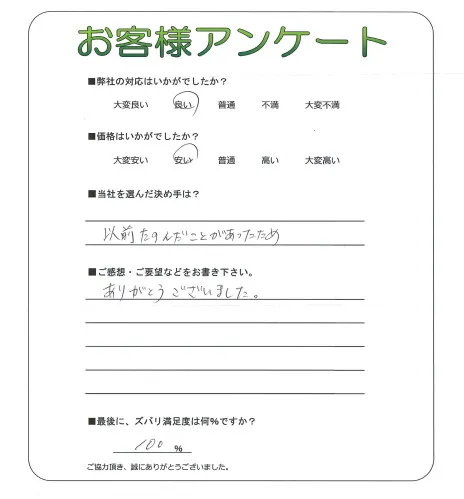 お客様アンケート
■弊社の対応はいかがでしたか？
大変良い 良い 普通 不満 大変不満
■価格はいかがでしたか？
大変安い 安い 普通 高い 大変高い
■当社を選んだ決め手は？
以前たのんだことがあったため
■ご感想・ご要望などをお書き下さい。
ありがとうございました。
■最後に、ズバリ満足度は何%ですか？
100 %
ご協力頂き、誠にありがとうございました。